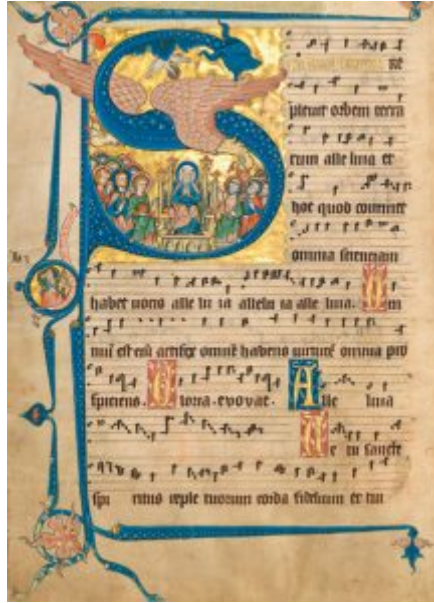 re
pleuit orbem terra
rum alle luia et
hoc quod continet
omnia scienciam
habet uocis alle lu ia allelu ia alle luia. Om
niū est eni artifex omnē habens uirtutē omnia pro
spiciens. Gloria. evovae. Alle luia
Ve ni sancte
spi ritus reple tuorum corda fidelium et tui